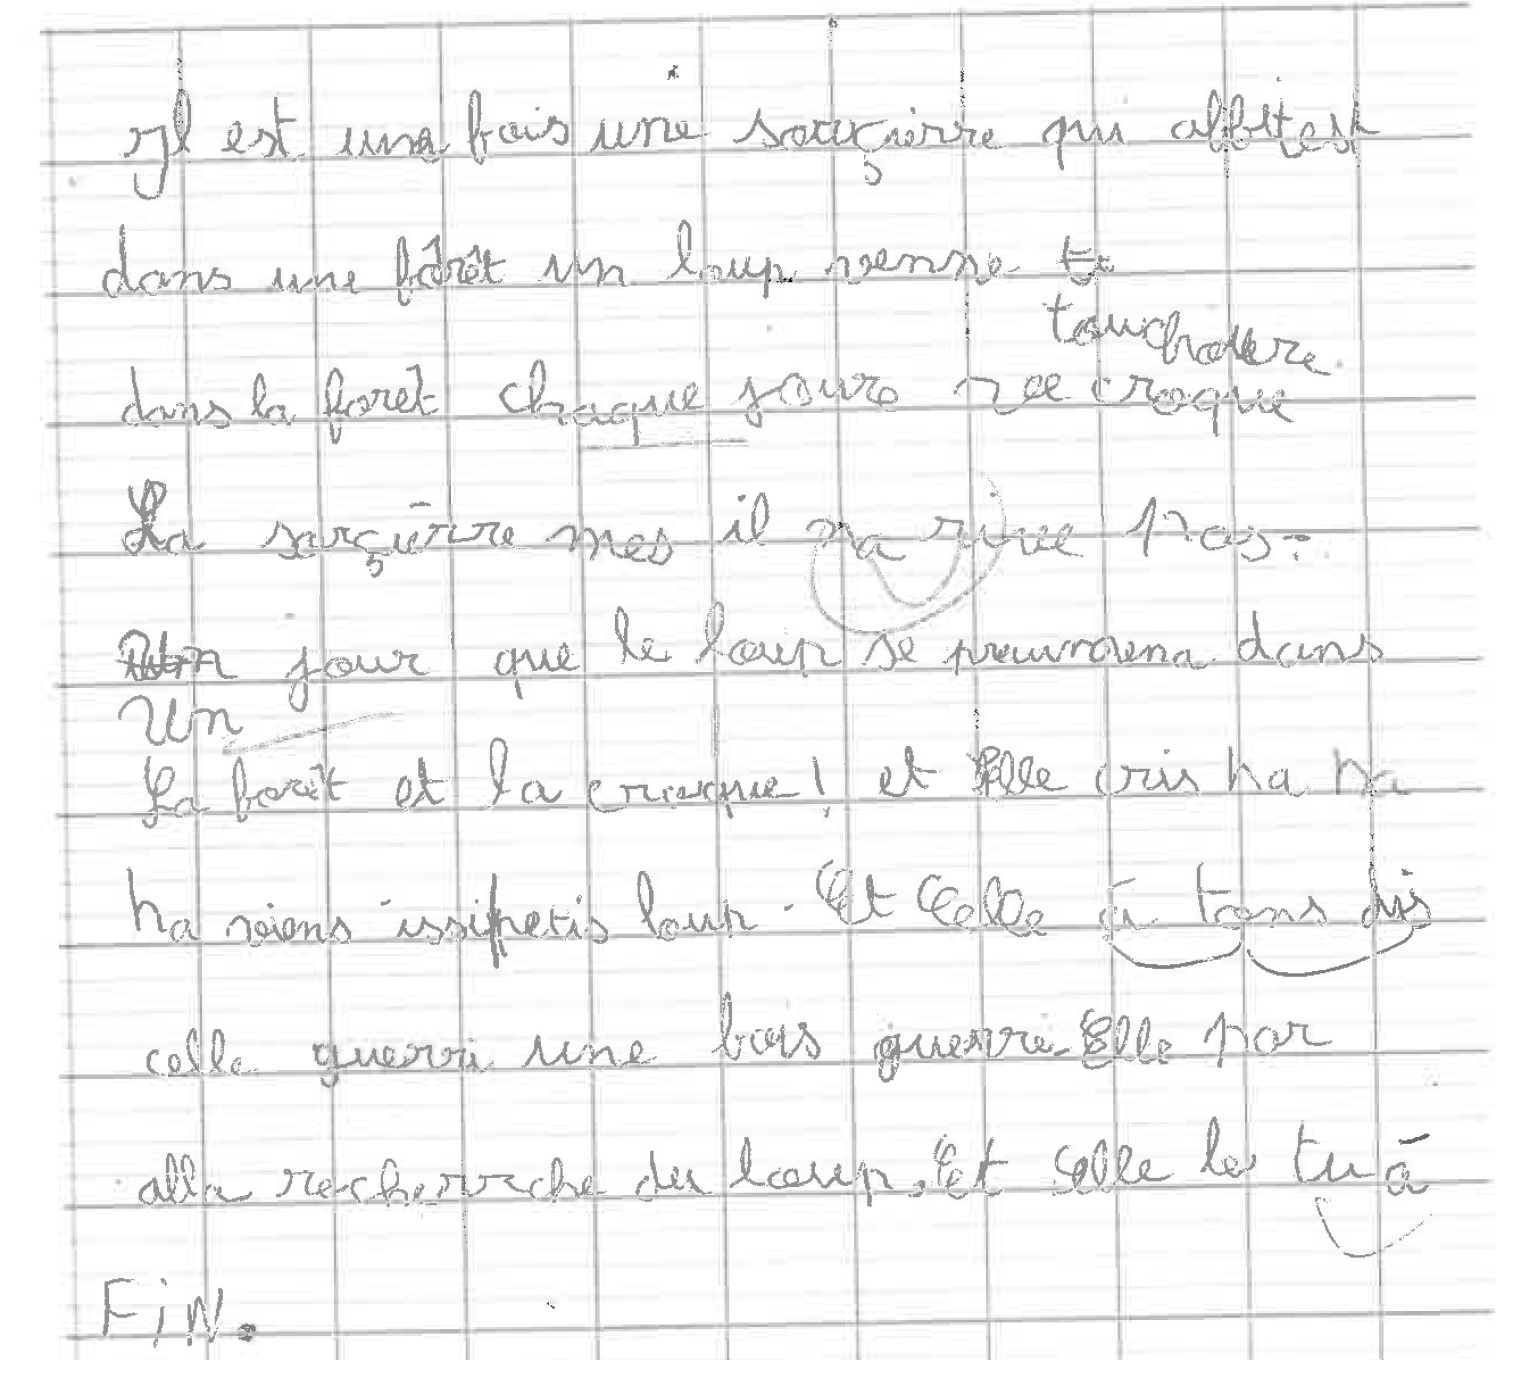 Il est une fois une sourçièrre qui abbitest
dans une fôrêt un loup venne
dans la forêt chaque joure croque
La sorçièrre mes il na rivee pas.
Un jour que le loup se preumena dans
La forêt et la craque! et Elle cris ha ha
ha viens issi petis loup. Et Celle à tans dis
celle guerri une bois guerre. Elle par
alla recherrche du loup. Et Celle le tuà
FiN.